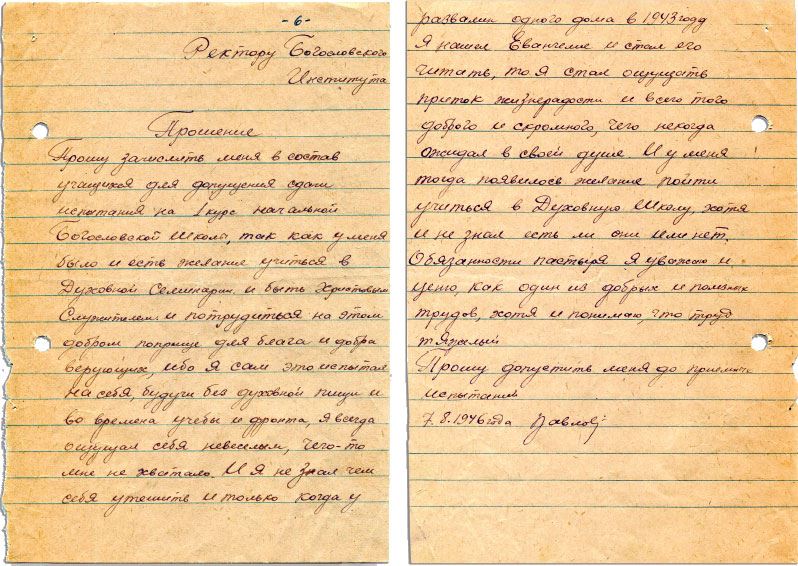 -6-
Ректору Богословского
Института
Прошение
Прошу зачислить меня в состав
учащихся для допущения сдачи
испытания на I курс начальной
Богословской Школы, так как у меня
было и есть желание учиться в
Духовной Семинарии и быть Христовым
Служителем и потрудиться на этом
добром поприще для блага и добра
верующих, ибо я сам это испытал
на себя, будучи без духовной пищи и
во времена учебы и фронта, я всегда
ощущал себя невеселым, чего-то
мне не хватало. И я не знал чем
себя утешить и только когда у
развалин одного дома в 1943 году
Я нашел Евангелие и стал его
читать, то я стал ощущать
приток жизнерадости и всего того
доброго и скромного, чего некогда
ожидал в своей душе. И у меня
тогда появилось желание пойти
учиться в Духовную Школу, хотя
и не знал есть ли они или нет.
Обязанности пастыря я уважаю и
ценю, как один из добрых и полезных
трудов, хотя и понимаю, что труд
тяжелый
Прошу допустить меня до приемных
испытаний
7.8.1946 года Павлов